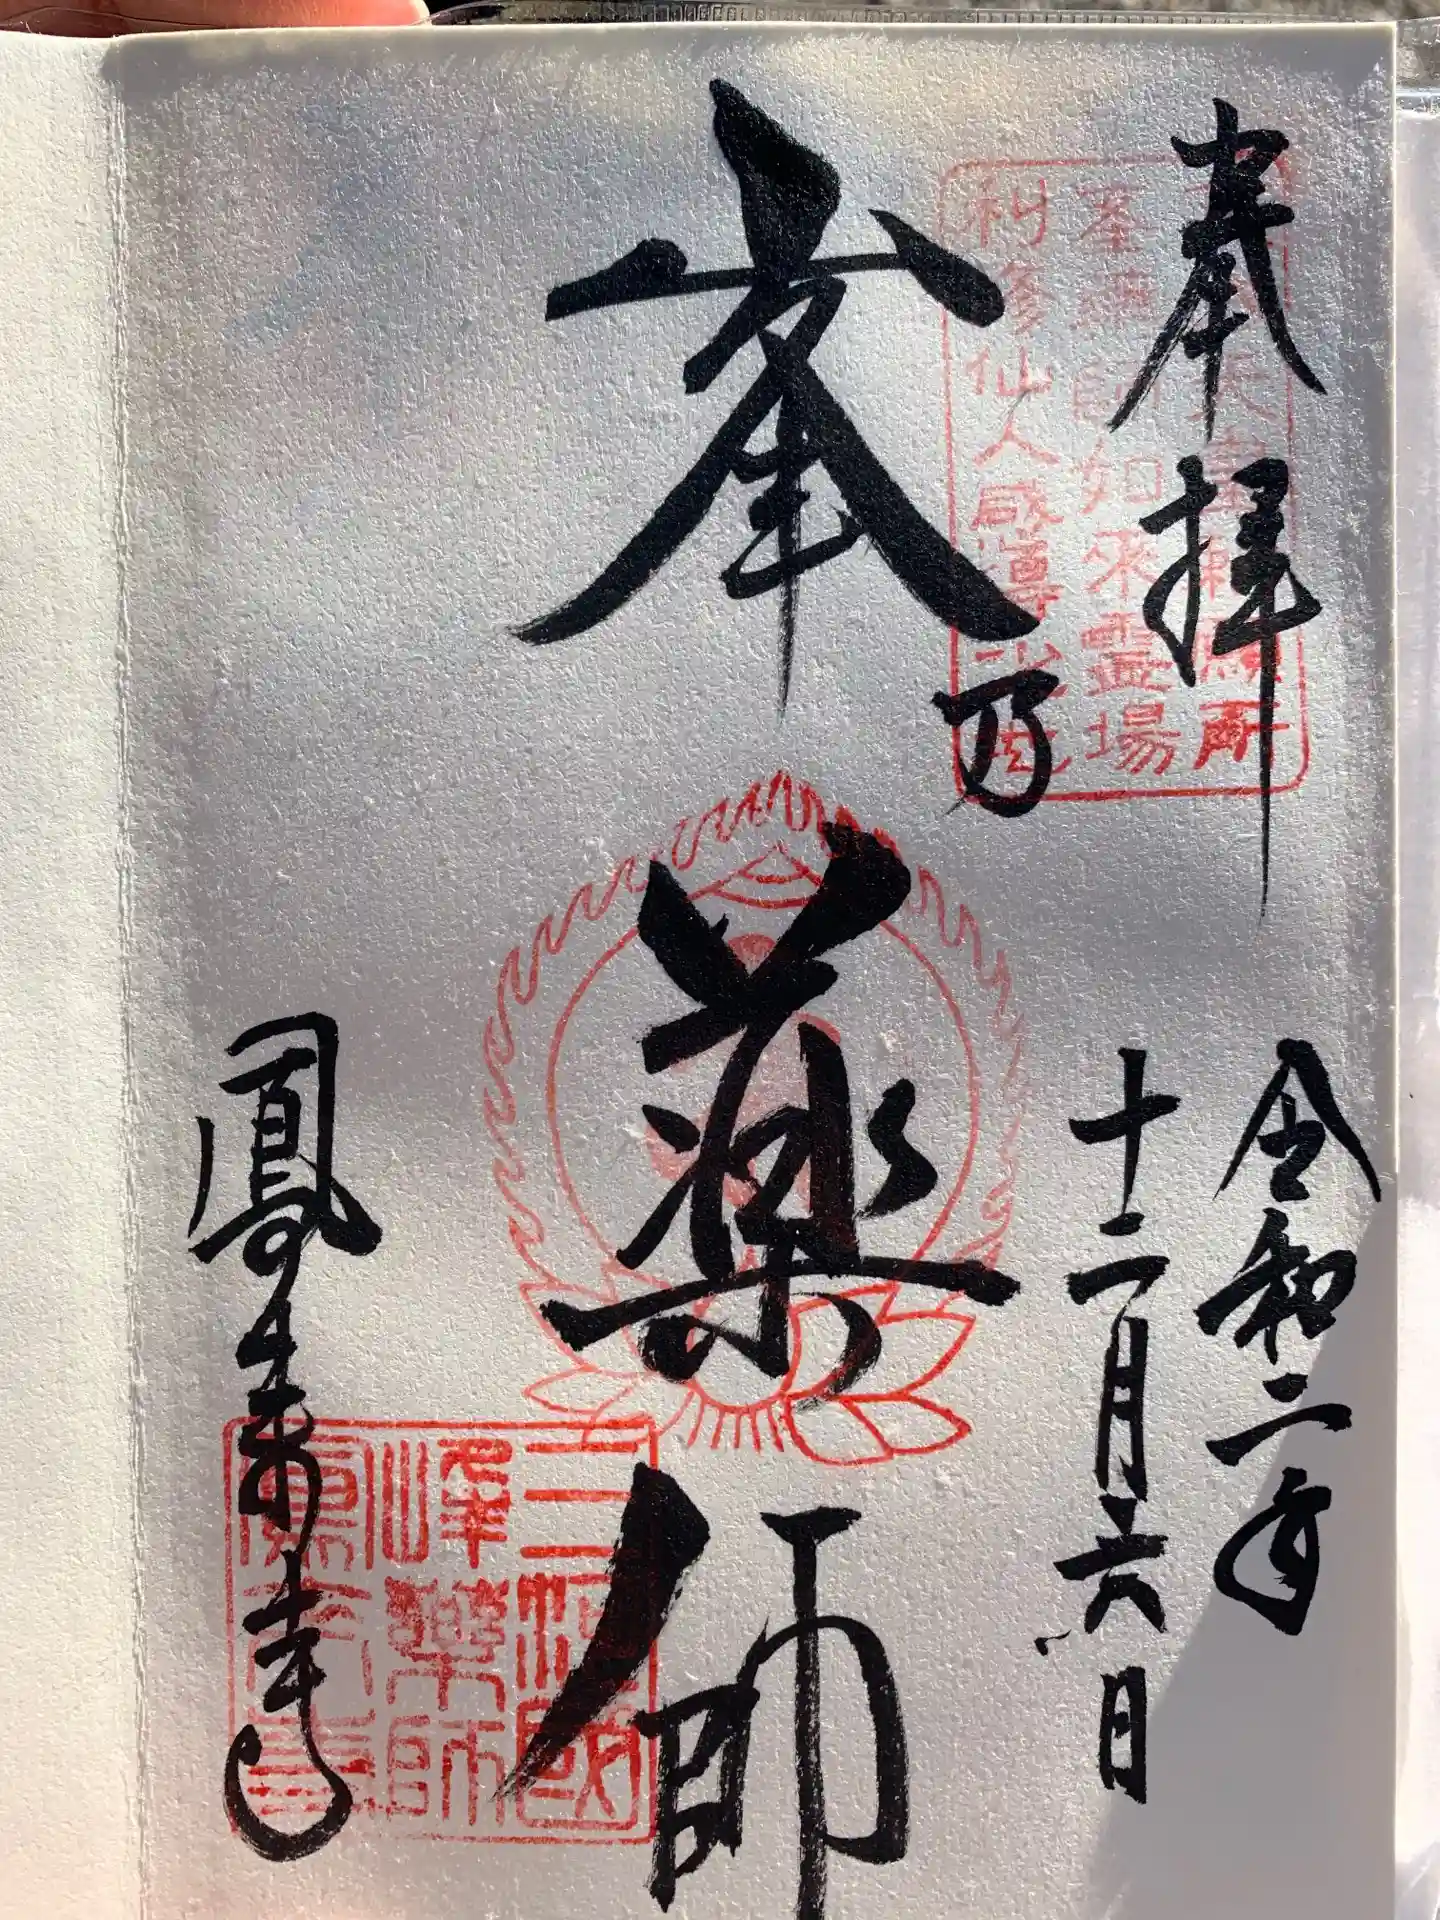 奉拝
令和二年
十二月六日
峯乃薬師
鳳来寺
峯薬師如来霊場
利修仙人啓導
三河國
峰薬師
鳳来寺